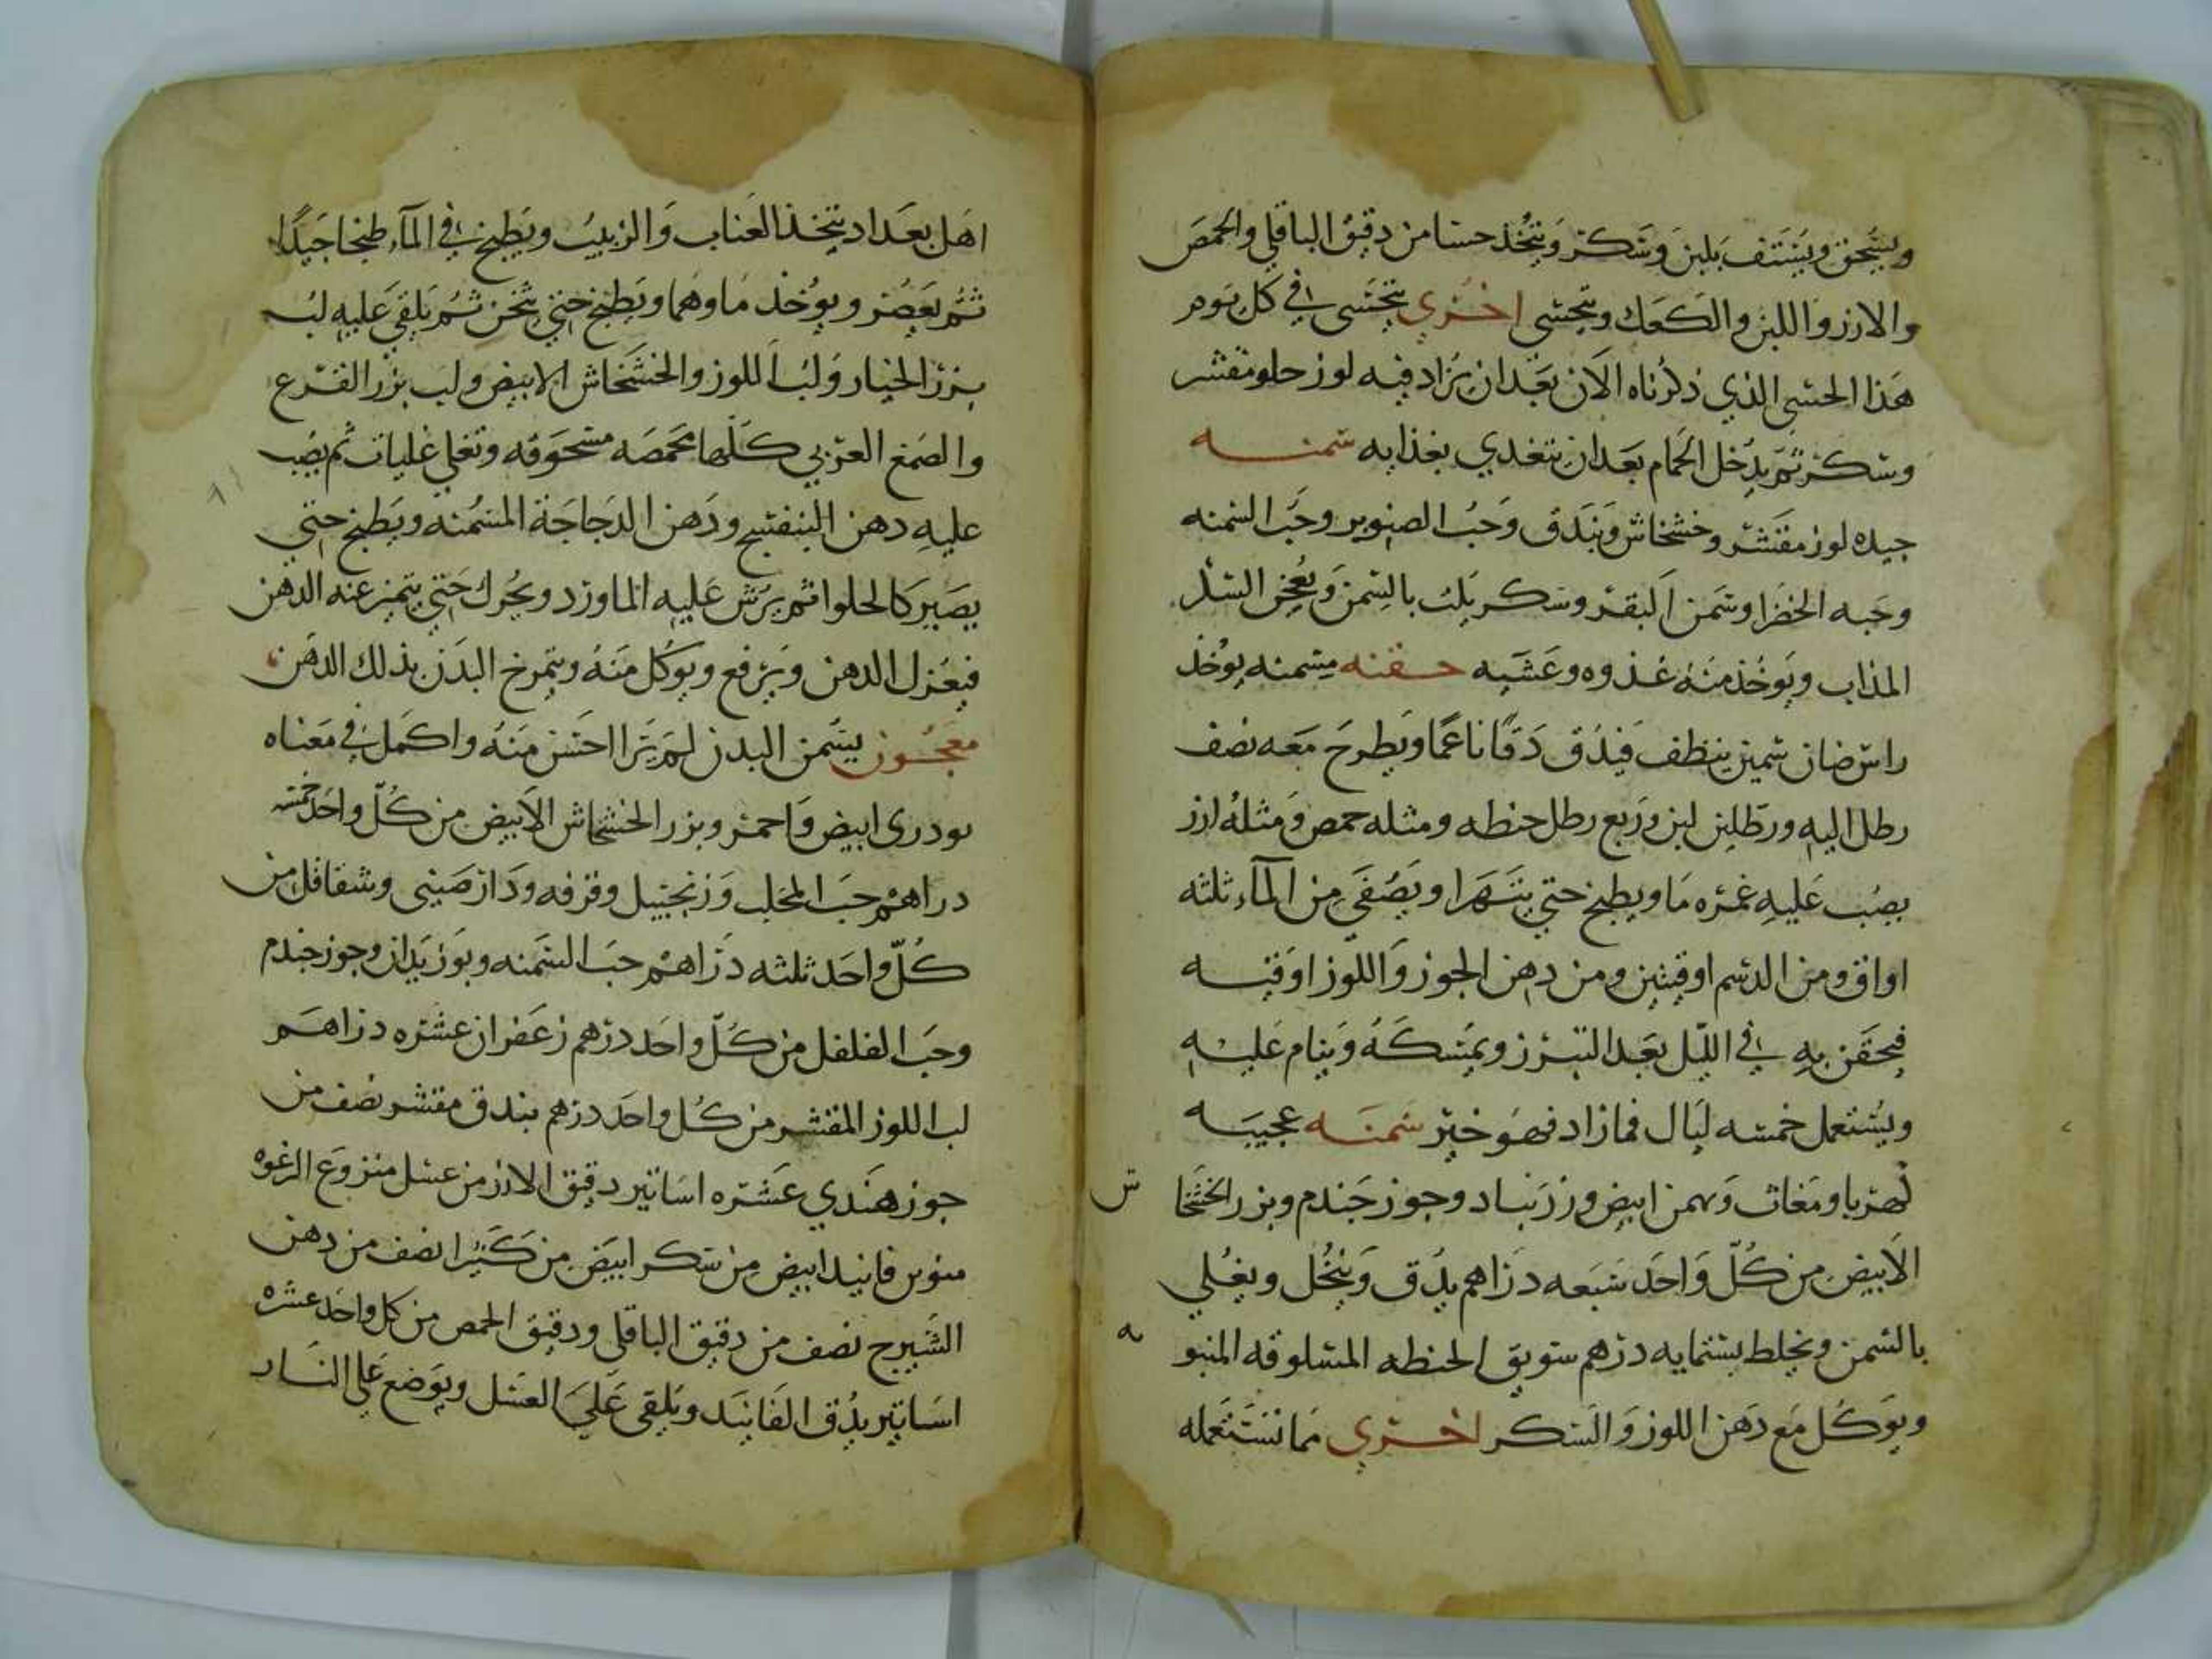 ويسحق ويستف بلبن وسكر ويتخذ حسا من دقيق الباقلي والحمص
والارز واللبن والكعك ويتحسى اخرى يتحسى في كل يوم
هذا الحسى الذي ذكرناه الان بعد ان يزاد فيه لوز حلو مقشر
وسكر ثم يدخل الحمام بعد ان يتغدي بغذايه سمنه
جيده لوز مقشر وخشخاش وبندق وحب الصنوبر وحب السمنه
وحبه الخضرا وسمن البقر وسكر يلت بالسمن ويعجن السكر
المذاب ويوخذ منه غدوه وعشيه حقنه مسمنه يوخذ
راس ضان سمين ينظف فيدق دقا ناعما ويطرح معه نصف
رطل اليه ورطلين لبن وربع رطل حنطه ومثله حمص ومثله ارز
يصب عليه غمره ما ويطبخ حتي يتهرا ويصفى من المآء ثلثه
اواق ومن الدسم اوقيتين ومن دهن الجوز واللوز اوقيه
فيحقن به في الليل بعد التبرز ويمسكه وينام عليه
ويستعمل خمسه ليال فما زاد فهو خير سمنه عجيبه
لهربا ومغاث وبهمن ابيض وزرنباد وجوز جندم وبزر الخشخاش
الابيض من كل واحد سبعه دراهم يدق وينخل ويغلي
بالسمن ويخلط بستمايه درهم سويق الحنطه المسلوقه المنبوه
ويوكل مع دهن اللوز والسكر اخرى مما تستعمله
اهل بعداد يتخذ العناب والزبيب ويطبخ في المآء طبخا جيدا
ثم يعصر ويوخذ ماوهما ويطبخ حتي يثخن ثم يلقي عليه لب
بزر الخيار ولب اللوز والخشخاش الابيض ولب بزر القرع
والصمغ العربي كلها محمصه مسحوقه وتغلي غليات ثم يصب
عليه دهن البنفسج ودهن الدجاجة المسمنه ويطبخ حتي
يصير كالحلوا ثم يرش عليه الماورد ويحرك حتي يتميز عنه الدهن
فيعزل الدهن ويرفع ويوكل منه ويتمرخ البدن بذلك الدهن
معجون يسمن البدن لم يرا احسن منه واكمل في معناه
بودرى ابيض واحمر وبزر الخشخاش الابيض من كل واحد خمسه
دراهم حب المحلب وزنجبيل وقرفه ودارصيني وشقاقل من
كل واحد ثلثه دراهم حب السمنه وبوزيدان وجوز جندم
وحب الفلفل من كل واحد درهم زعفران عشره دراهم
لب اللوز المقشر من كل واحد درهم بندق مقشر نصف من
جوز هندي عشره اساتير دقيق الارز من عسل منزوع الرغوه
منوين فانيد ابيض من سكر ابيض من كثيرا نصف من دهن
الشيرج نصف من دقيق الباقلي ودقيق الحمص من كل واحد عشره
اساتير يدق الفانيد ويلقى على العسل ويوضع علي النار